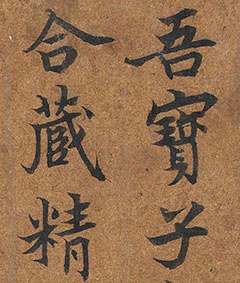 吾寶子
合藏精